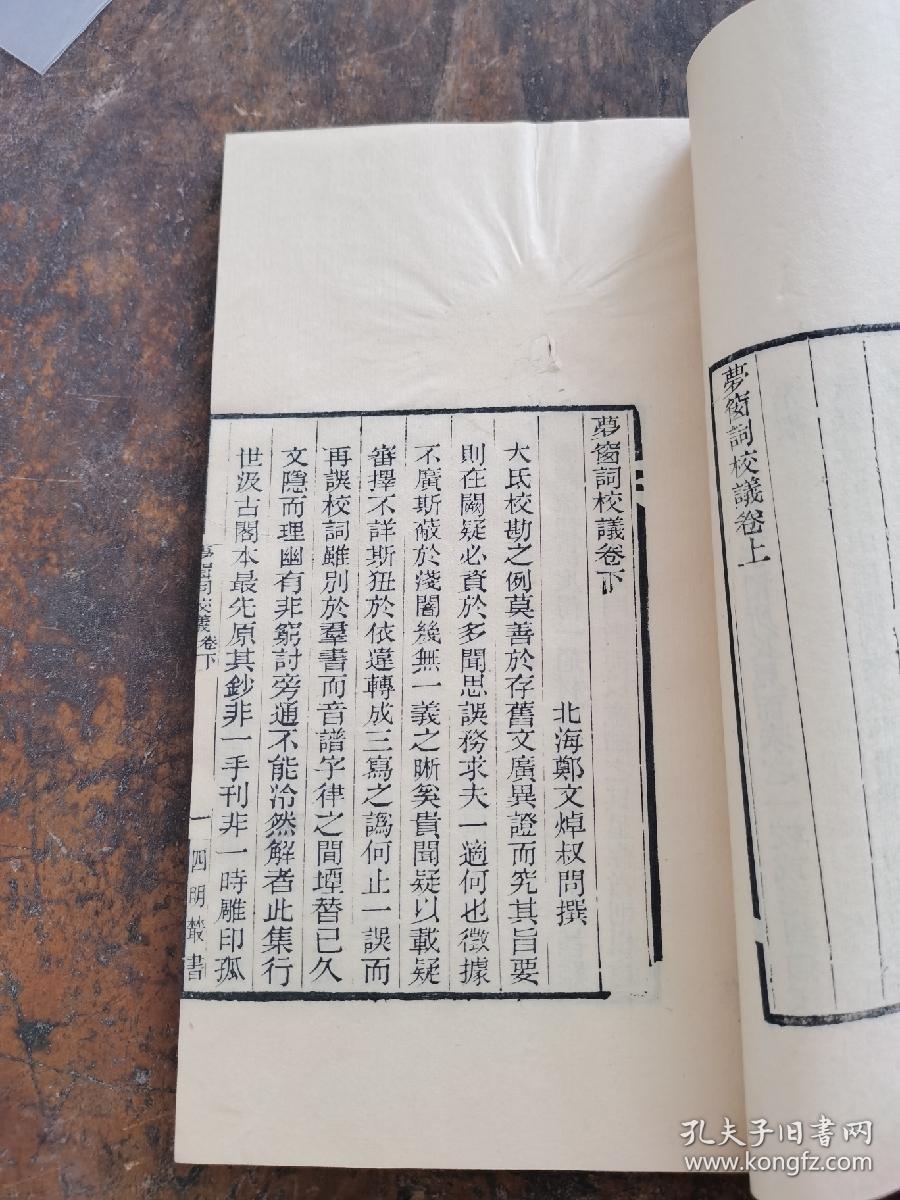 夢窗詞校議卷上
夢窗詞校議卷下
北海鄭文焯叔問撰
大氐校勘之例莫善於存舊文廣異證而究其旨要
則在闕疑必資於多聞思誤務求夫一適何也徵據
不廣斯蔽於淺闇幾無一義之晰矣貴聞疑以載疑
審擇不詳斯狃於依違轉成三寫之譌何止一誤而
再誤校詞雖別於羣書而音譜字律之間堙替已久
文隱而理幽有非窮討旁通不能泠然解者此集行
世汲古閣本最先原其鈔非一手刊非一時雕印孤
夢窗詞校議卷下
一
四明叢書
孔夫子旧书网
www.kongfz.com